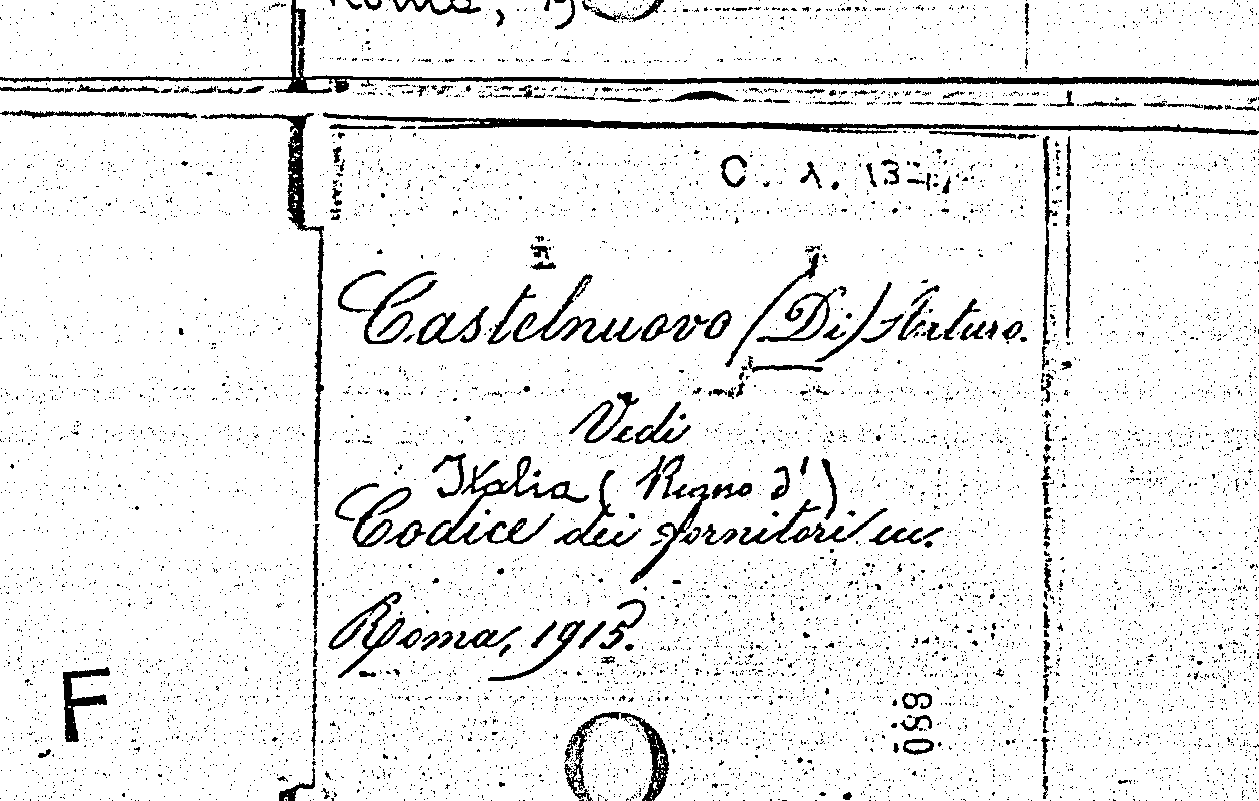 Roma, 19
C. A. 134
Castelnuovo (Di) Arturo.
Vedi
Italia (Regno d')
Codice dei fornitori ecc.
Roma, 1915.
F
088